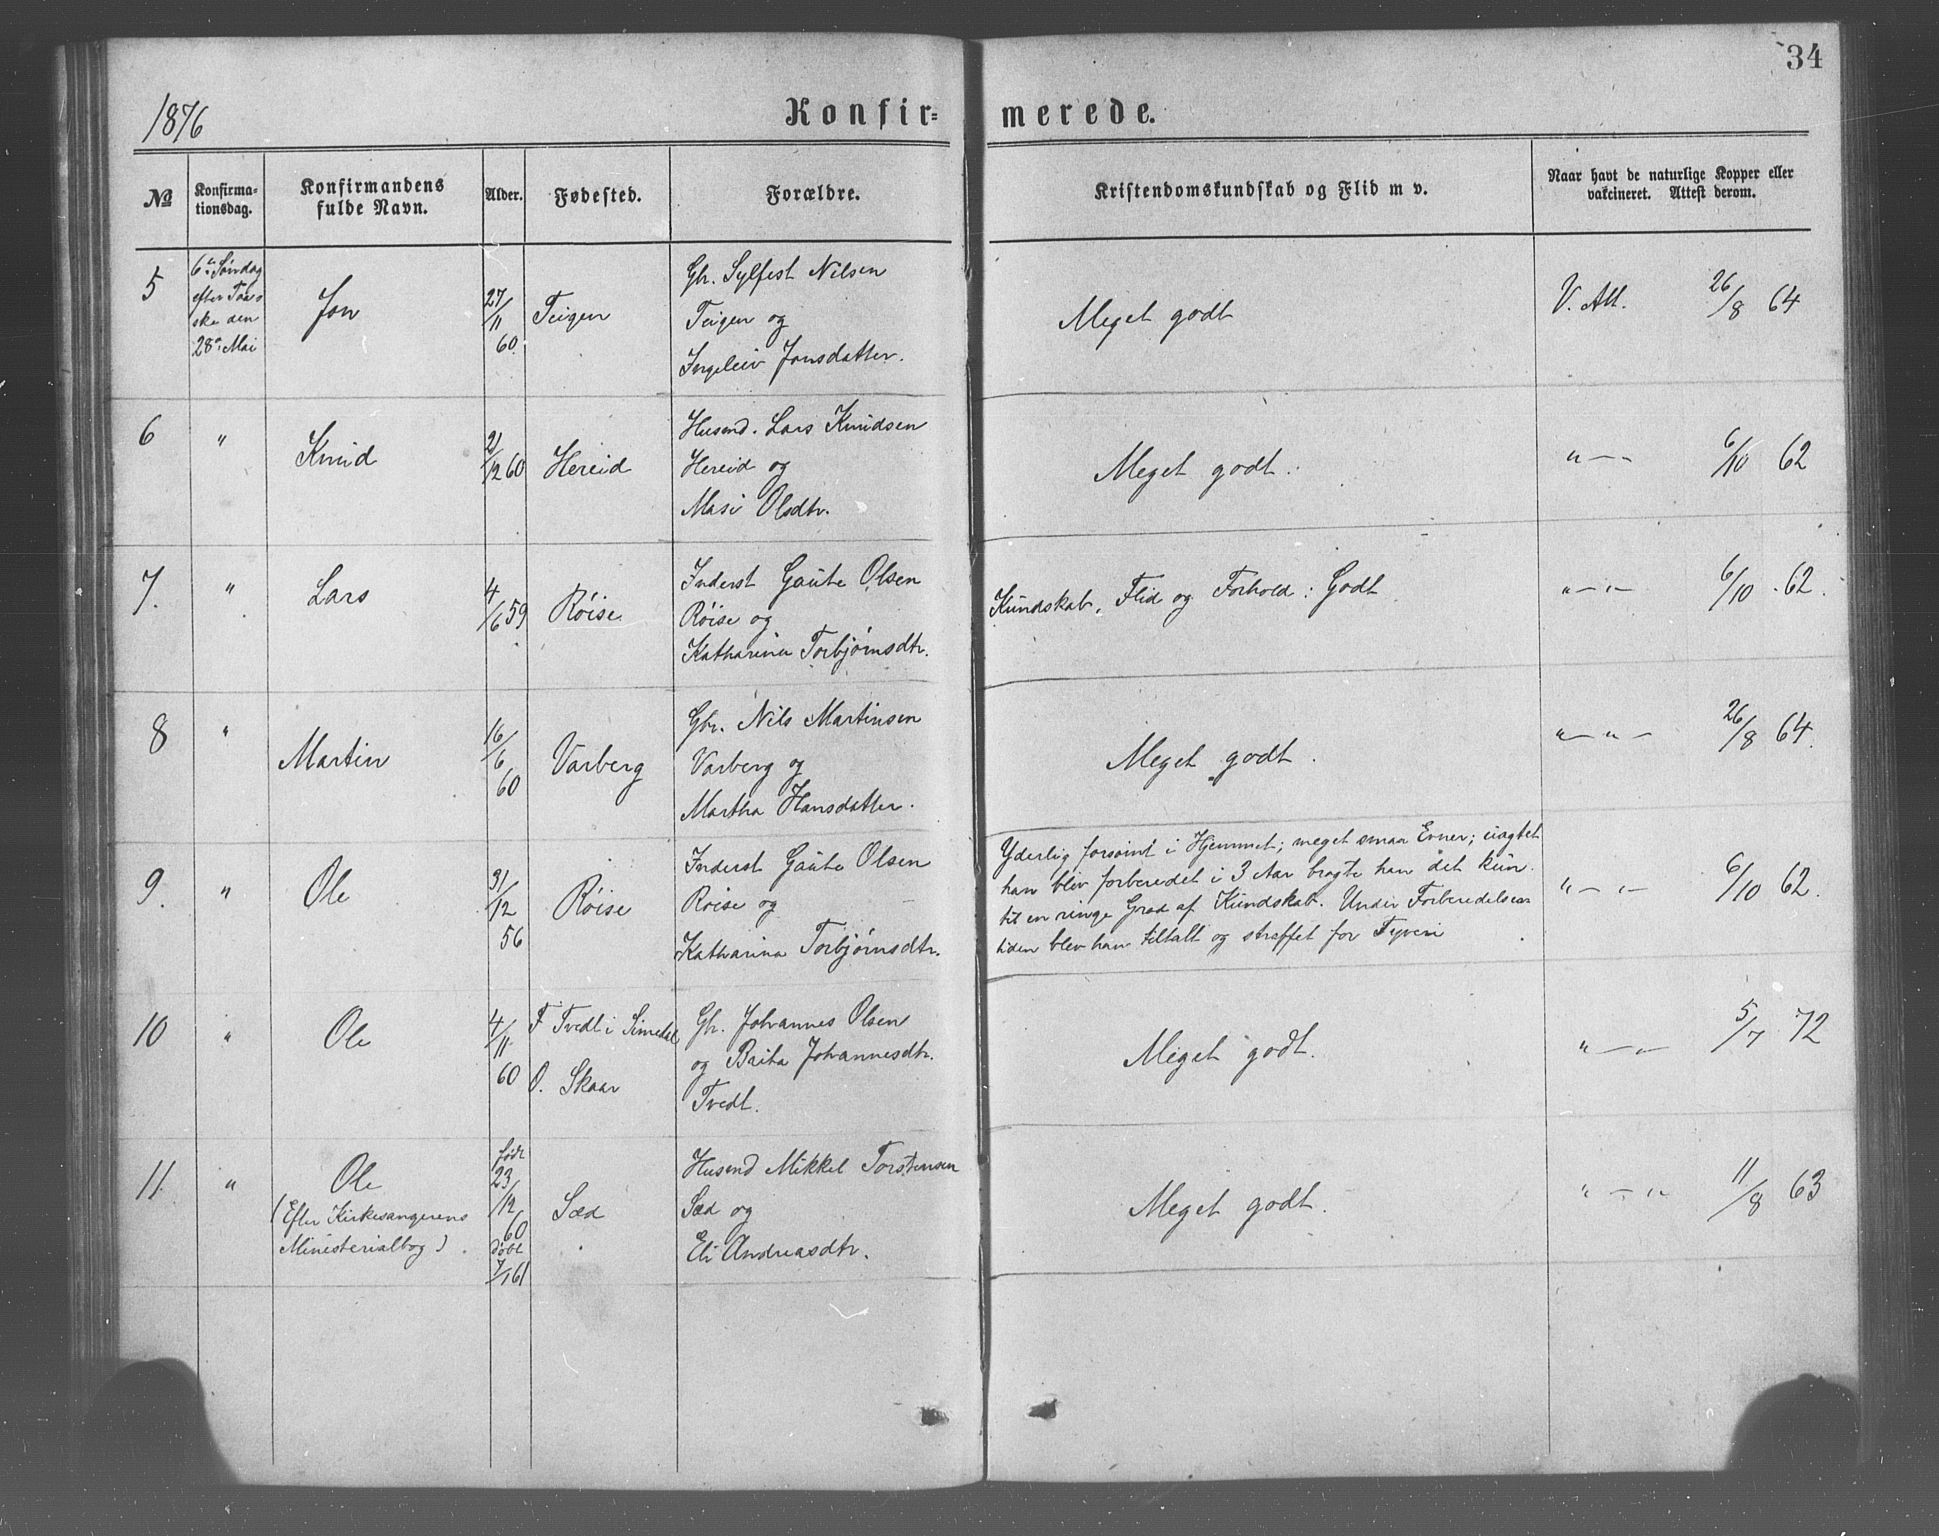 34
1876
Konfir= merede.
No
Konfirma-
tionsdag.
Konfirmandens
fulde Navn.
Alder.
Fødested.
Forældre.
Kristendomskundskab og Flid m v.
Naar havt de naturlige Kopper eller
vakcineret. Attest derom.
5
6te Søndag
efter Paa-
ske den
28de Mai
Jon
27/11
60.
Teigen
Gbr. Sylfest Nilsen
Teigen og
Ingeleiv Jonsdatter.
Meget godt
V. Att. 26/8 64
6 " Knud 2/12 60 Hereid
Husmd. Lars Knudsen
Hereid og
Masi Olsdtr.
Meget godt.
" — — 6/10 62
7. " Lars 4/6 59 Røise
Inderst Gaute Olsen
Røise og
Katharina Torbjørnsdtr.
Kundskab, Flid og Forhold: Godt
" — " — 6/10 62.
8 " Martin
16/6
60
Varberg
Gbr. Nils Martinsen
Varberg og
Martha Hansdatter.
Meget godt.
" — " — 26/8 64.
9. " Ole
31/12
56
Røise
Inderst Gaute Olsen
Røise og
Katharina Torbjørnsdtr.
Yderlig forsømt i Hjemmet; meget smaa Evner; uagtet
han blev forberedet i 3 Aar bragte han det kun
til en ringe Grad af Kundskab. Under Forberedelses
tiden blev han tiltalt og straffet for Tyveri
" — " — 6/10 62.
10 " Ole
4/11
60
F Tvedt i Simedal
O. Skaar
Gbr. Johannes Olsen
og Brita Johannesdtr.
Tvedt.
Meget godt.
" — " — 5/7 72
11. " Ole
(Efter Kirkesangerens
Ministerialbog)
født
23/12
60
døbt
7/1 61
Sæd
Husmd Mikkel Torstensen
Sæd og
Eli Andreasdtr.
Meget godt.
" — " 11/8 63